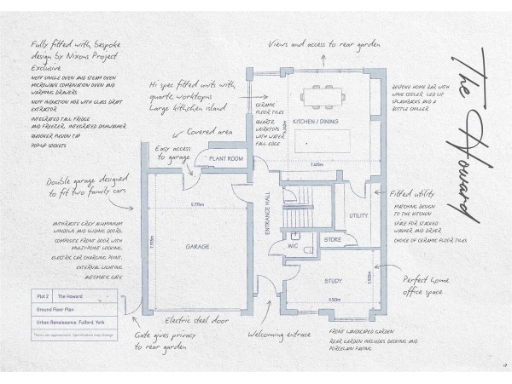 The Howard
Views and access to rear garden
Fully fitted with bespoke
design by Nixons Project
Exclusive
NEFF SINGLE OVEN AND STEAM OVEN
MICROWAVE COMBINATION OVEN AND
WARMING DRAWERS
NEFF INDUCTION HOB WITH GLASS DRAFT
EXTRACTOR
INTEGRATED TALL FRIDGE
AND FREEZER, INTEGRATED DISHWASHER
QUOOKER BOILING TAP
POP-UP SOCKETS
Hi spec fitted units with
quartz worktops
Large kitchen island
Covered area
Easy access
to garage
CERAMIC
FLOOR TILES
QUARTZ
WORKTOP
WITH WATER
FALL EDGE
KITCHEN / DINING
7.400m
BESPOKE HOME BAR WITH
WINE COOLER, LED LIT
SPLASHBACK AND
BOTTLE CHILLER
PLANT ROOM
Double garage designed
to fit two family cars
5.775m
GARAGE
ENTRANCE HALL
UTILITY
WC
STORE
STUDY
Fitted utility
MATCHING DESIGN
TO THE KITCHEN
SPACE FOR STACKED
WASHER AND DRYER
CHOICE OF CERAMIC FLOOR TILES
ANTHRACITE GREY ALUMINIUM
WINDOWS AND SLIDING DOORS.
COMPOSITE FRONT DOOR WITH
MULTI-POINT LOCKING.
ELECTRIC CAR CHARGING POINT.
EXTERNAL LIGHTING
AUTOMATIC GATE
Perfect home
office space
Plot 2 The Howard
Ground Floor Plan
Urban Renaissance Fulford York
Electric steel door
Gate gives privacy
to rear garden
Welcoming entrance
FRONT LANDSCAPED GARDEN
REAR GARDEN INCLUDES DECKING AND
PORCELAIN PAVING